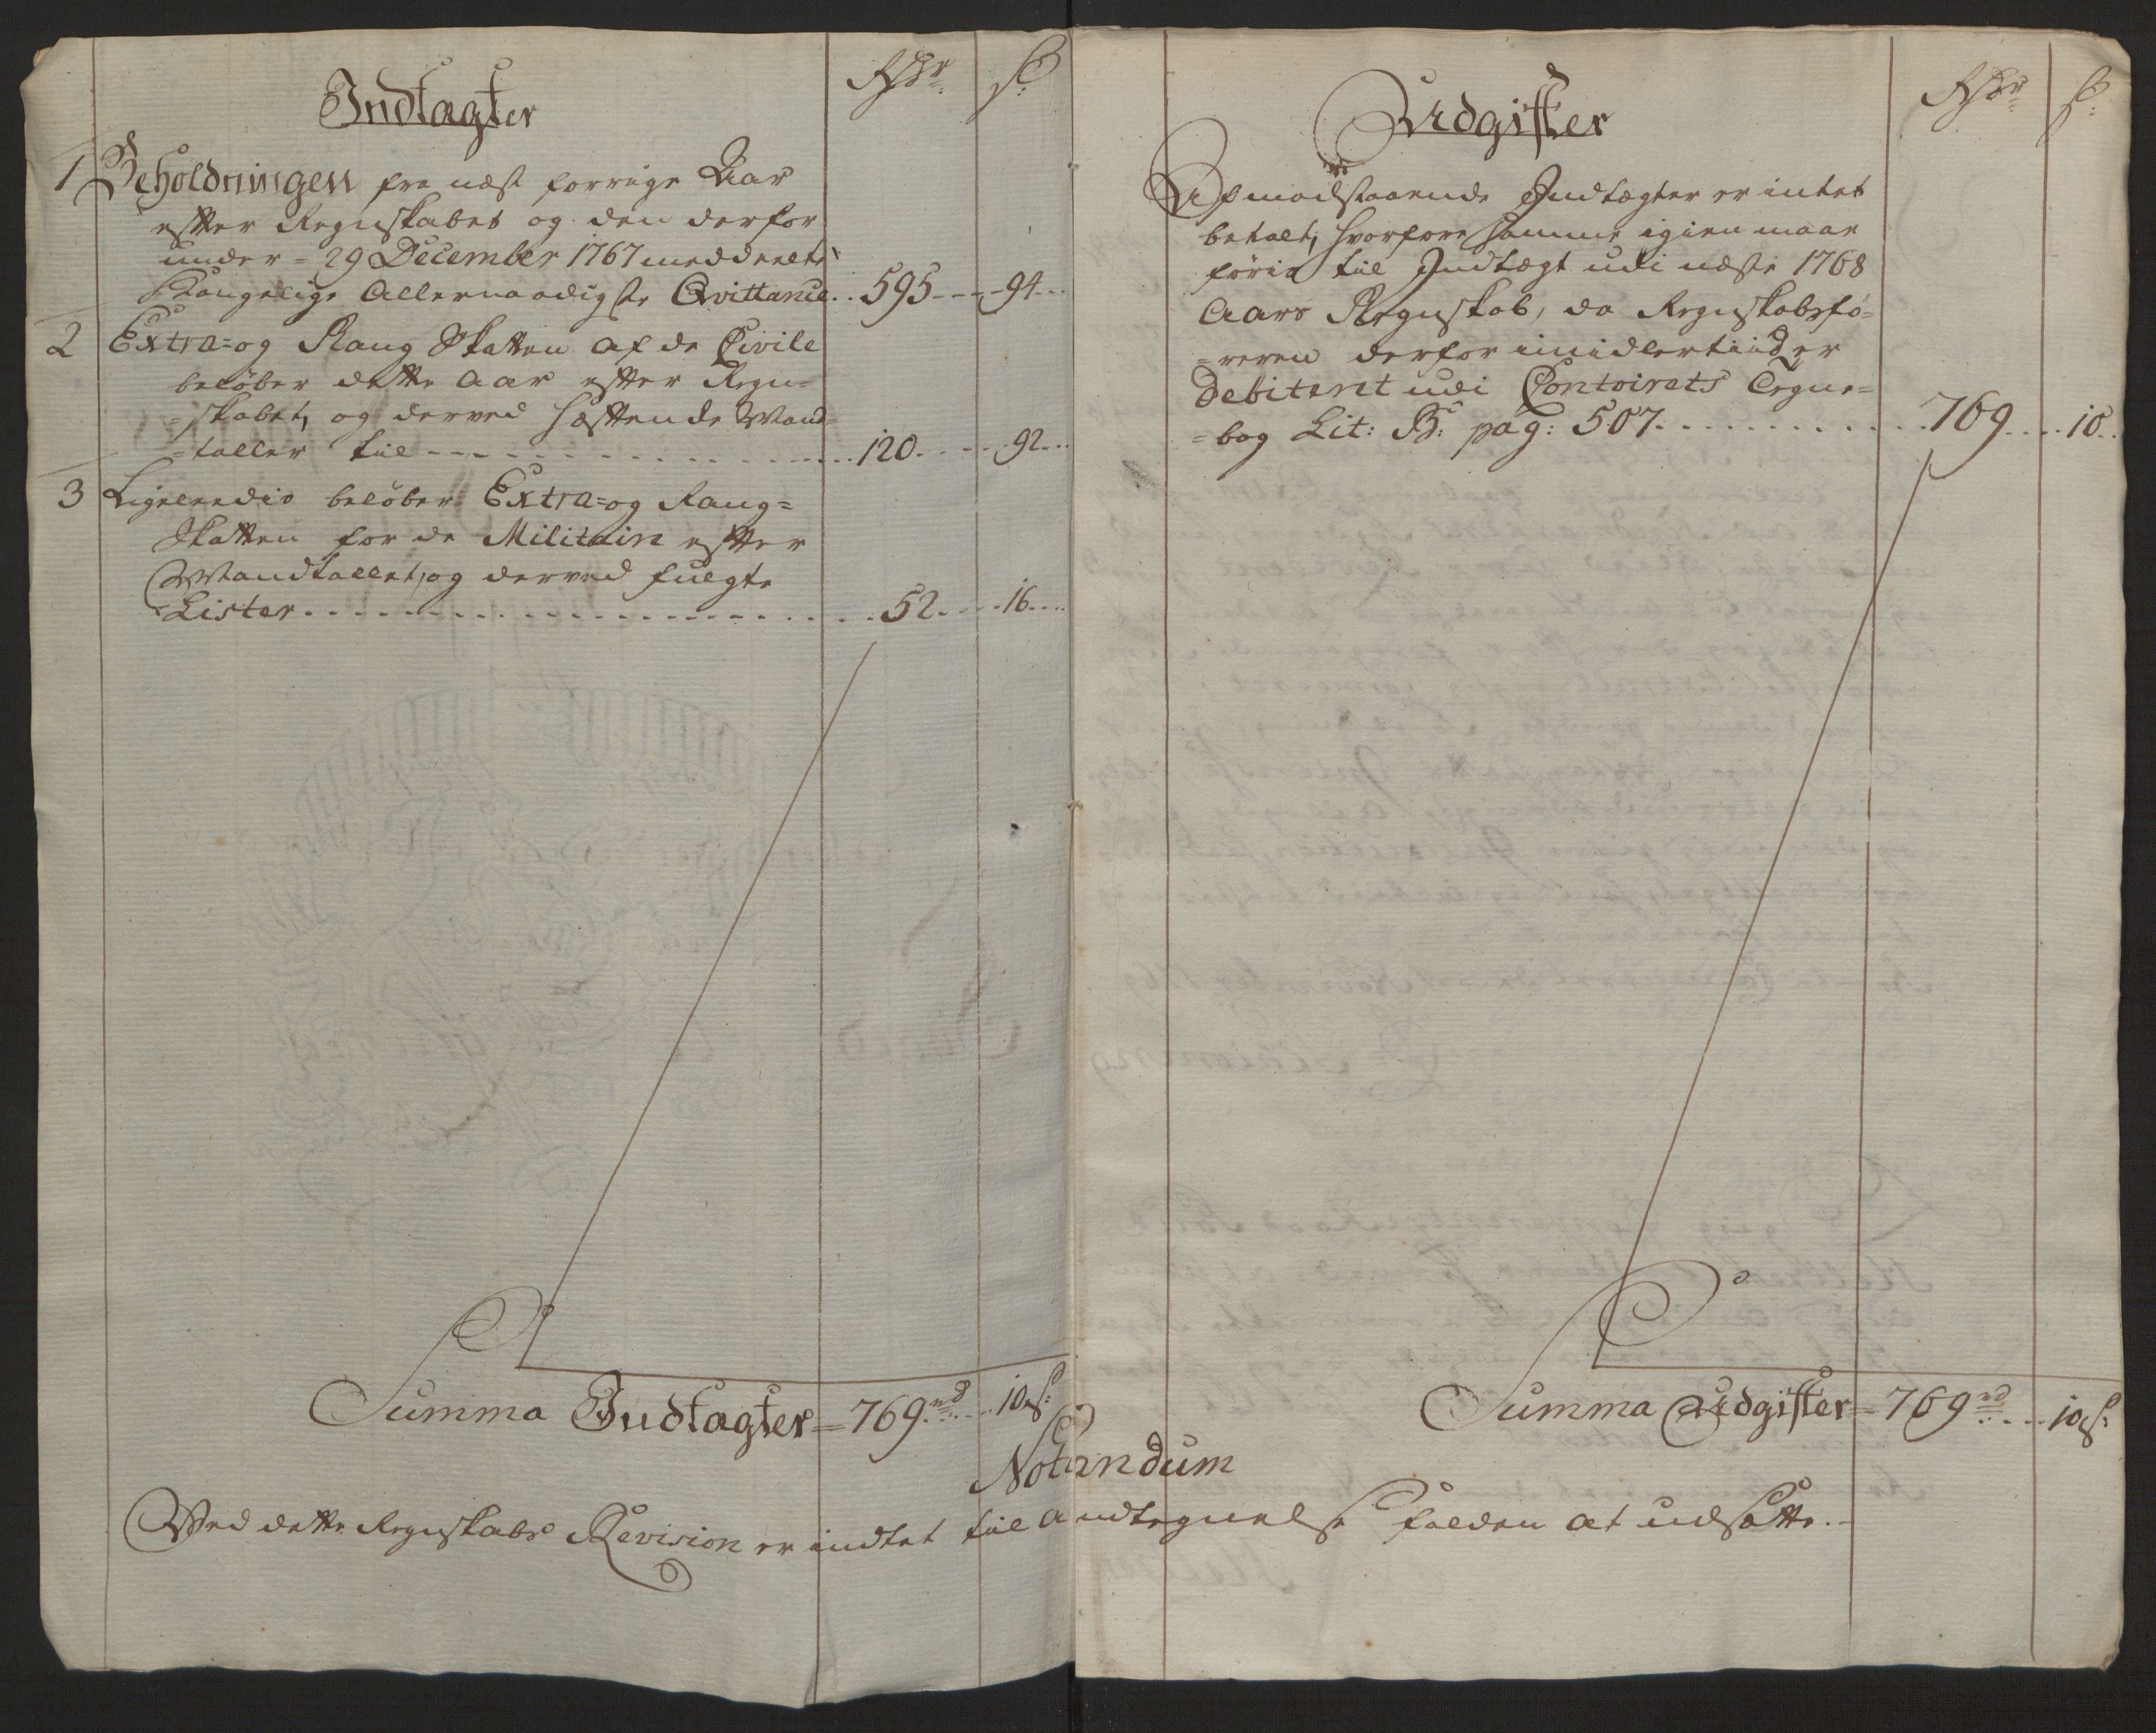 Indtægter
Rdr. ß.
1 Beholdningen fra næst forrige Aar
efter Regnskabet og den derfor
under = 29 December 1767 meddeelte
Kongelige Allernaadigste Qvittance .. 595 - - - 94 ...
2 Extra- og Rang Skatten af de Civile
beløber dette Aar efter Regn=
=skabet, og derved hæftende Mand=
=taller til - - - - - - - - - - 120 - - - 92 ...
3 Ligeleedis beløber Extra- og Rang=
Skatten for de Militaire efter
Mandtallet, og derved fulgte
Lister . . . . . . . . . . . . . . . 52 - - - 16 ....
Summa Indtægter = 769 rd .... 10 ß:
Udgifter
Rdr. ß:
Af modstaaende Indtægter er intet
betalt, hvorfore samme igien maae
føris til Indtægt udi næste 1768
Aars Regnskab, da Regnskabsfø=
=reren derfor imidlertiid er
debiteret udi Contoirets Tegne=
=bog Lit: B: pag: 507. . . . . . . . . 769 .... 10 ..
Summa Udgifter = 769 rd .... 10 ß:
Notandum
Ved dette Regnskabs Revision er indtet til Andtegnelse falden at udsætte.